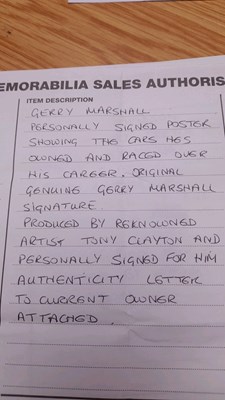 EMORABILIA SALES AUTHORIS
ITEM DESCRIPTION
GERRY MARSHALL
PERSONALLY SIGNED POSTER
SHOWING THE CARS HES
OWNED AND RACED OVER
HIS CAREER. ORIGINAL
GENUINE GERRY MARSHALL
SIGNATURE.
PRODUCED BY REKNOWNED
ARTIST TONY CLAYTON AND
PERSONALLY SIGNED FOR HIM
AUTHENTICITY LETTER
TO CURRENT OWNER
ATTACHED.